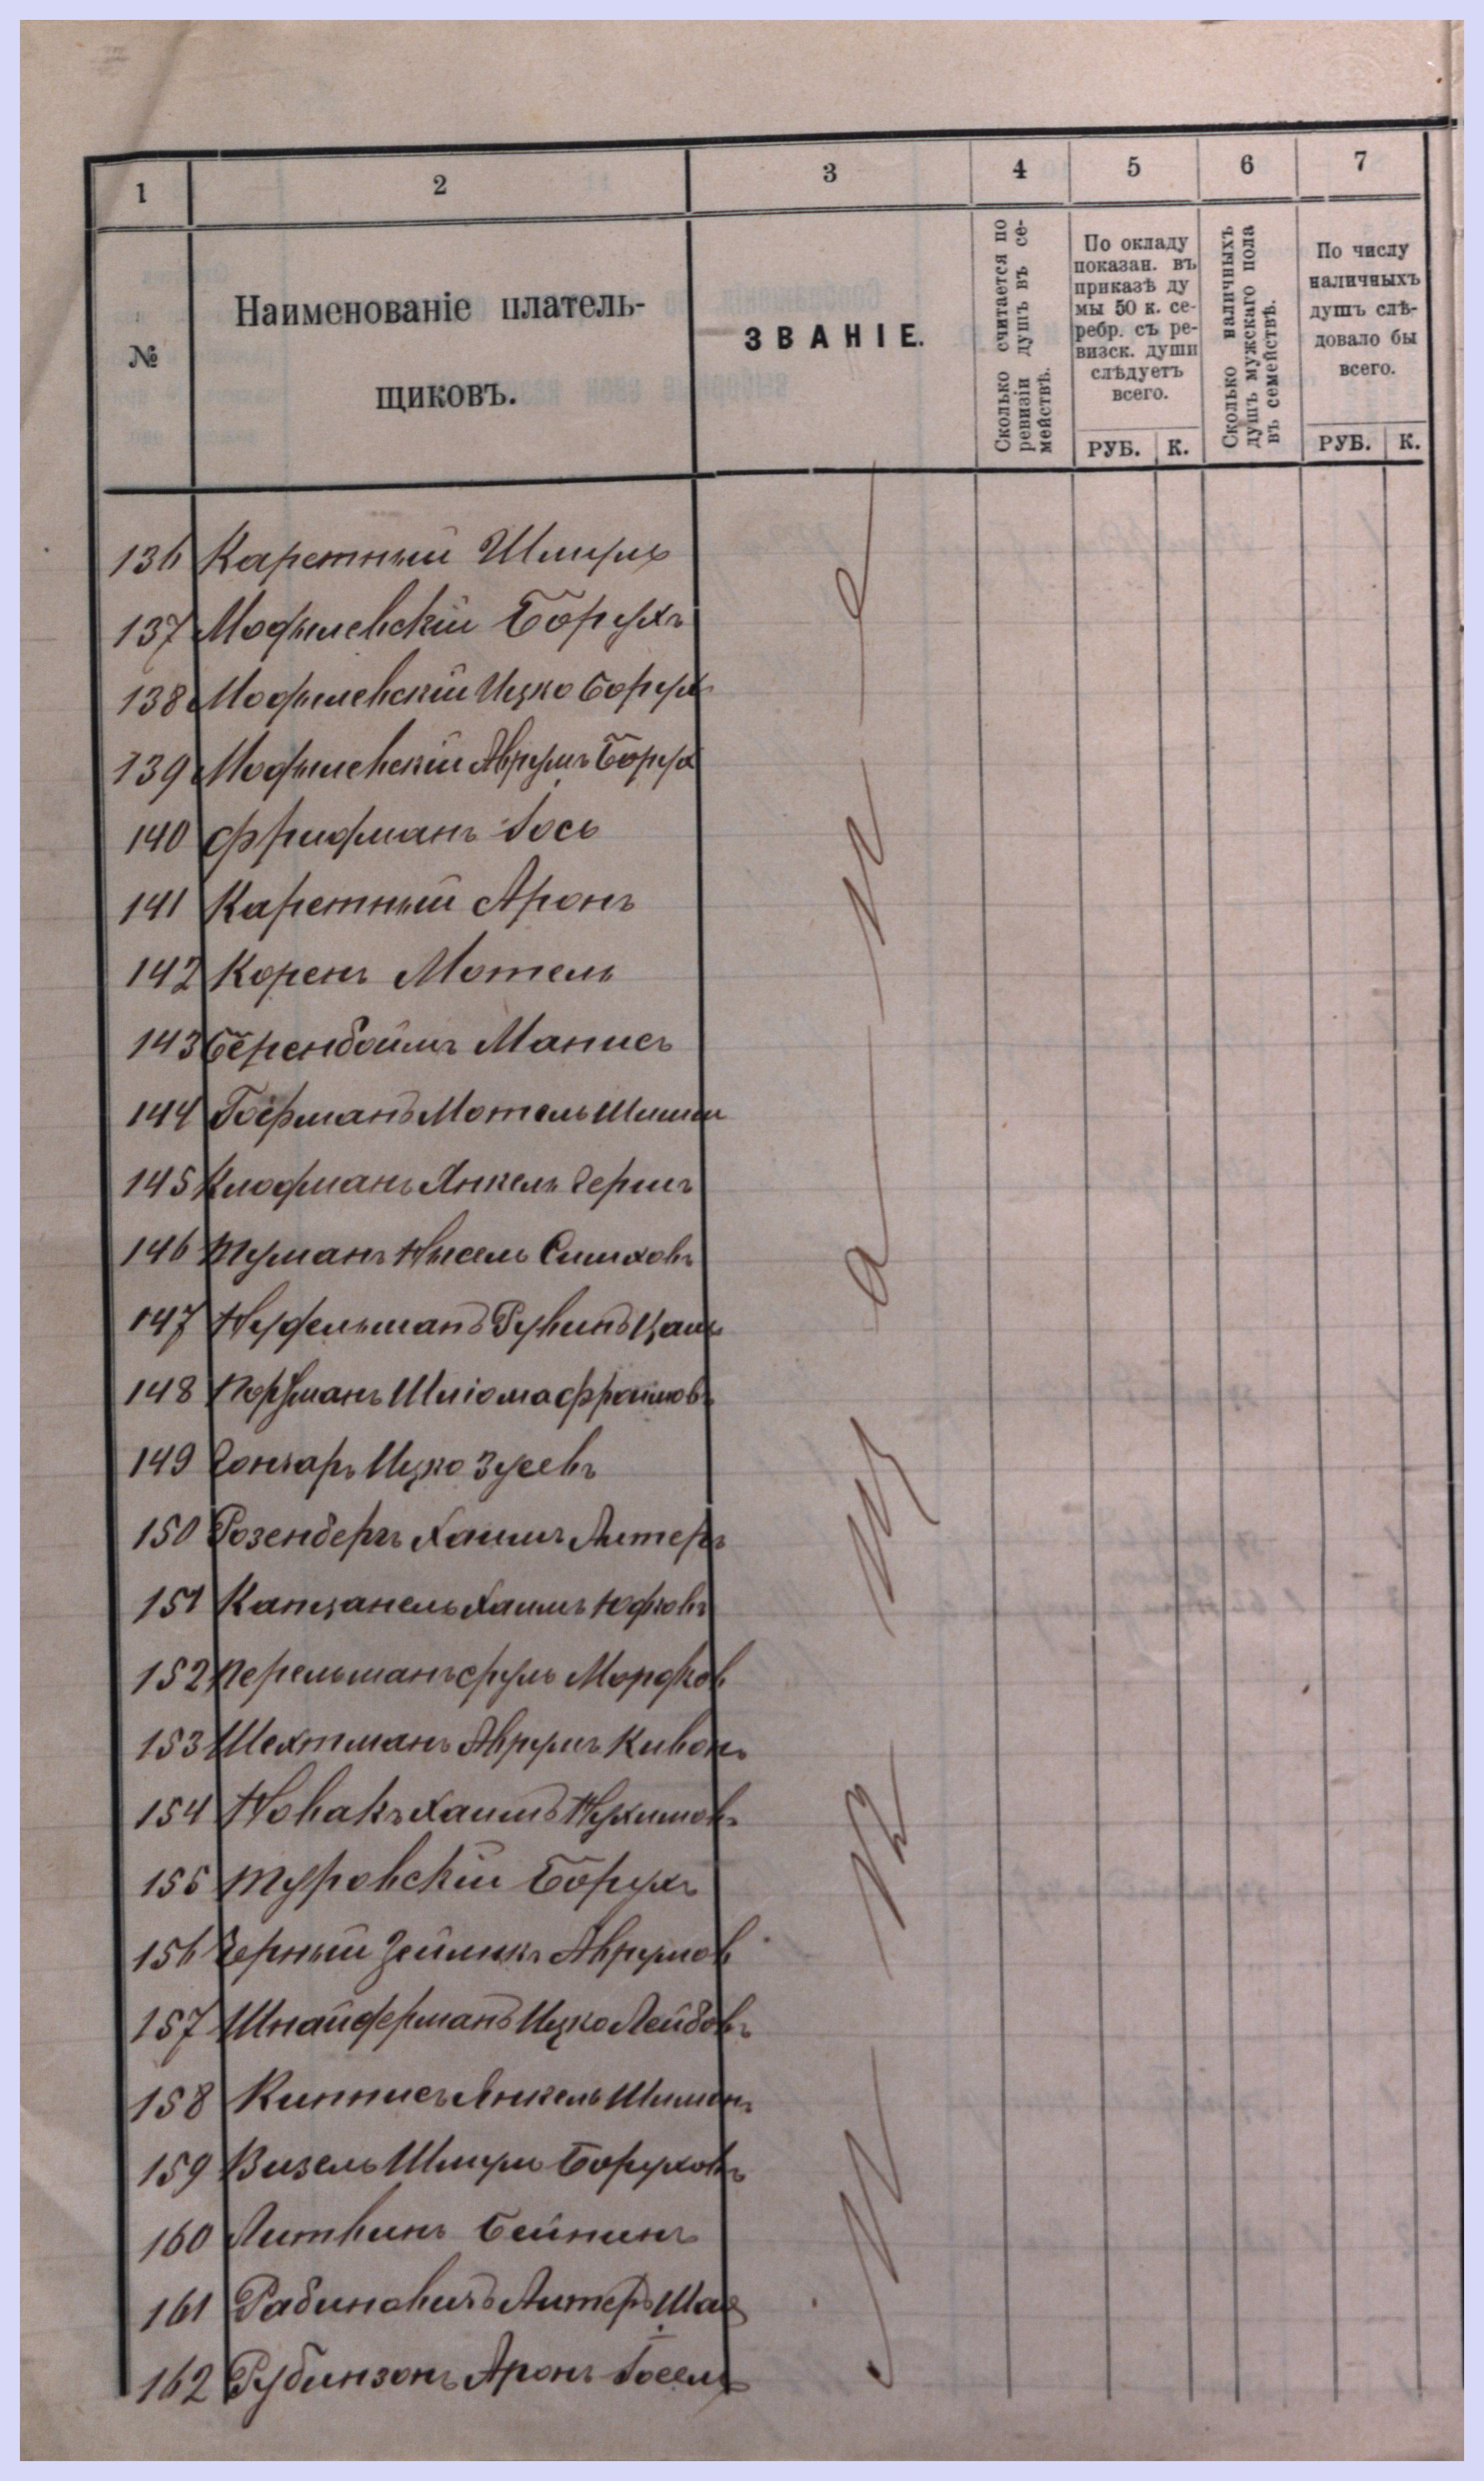 1 2 3 4 5 6 7
№
Наименованіе платель-
щиковъ.
ЗВАНІЕ.
Сколько считается по
ревизіи душъ въ се-
мействѣ.
По окладу
показан. въ
приказѣ ду
мы 50 к. се-
ребр. съ ре-
визск. души
слѣдуетъ
всего.
РУБ. К.
Сколько наличныхъ
душъ мужскаго пола
въ семействѣ.
По числу
наличныхъ
душъ слѣ-
довало бы
всего.
РУБ. К.
136 Каретный Шмуль
137 Модылевскій Борухъ
138 Модылевскій Ицко Борух
139 Модылевскій Аврумъ Борух
140 Фридманъ Іось
141 Каретный Аронъ
142 Коренъ Мотель
143 Беренбоймъ Манисъ
144 Мотель
145 Клюфманъ Янкель Герш
146 Туманъ Нысель Симховъ
147 Нудельманъ Рувинъ
148 Портманъ Шліома Фроимовъ
149 Гончаръ Ицко Зусевъ
150 Розенбергъ Хаимъ Литеръ
151 Капцанель Хаимъ Юдковъ
152 Перельманъ Сруль Мордков
153 Шехтманъ Аврумъ Кивовъ
154 Новакъ Хаимъ Нухимовъ
155 Туровскій Борухъ
156 Черный Зейликъ Аврумов
157 Шнайдерманъ Ицко Лейбовъ
158 Кипписъ Янкель Шимонъ
159 Визель Шмуль Боруховъ
160 Литвинъ Бейнинъ
161 Рабиновичъ Литеръ
162 Рубинзонъ Аронъ Іосель